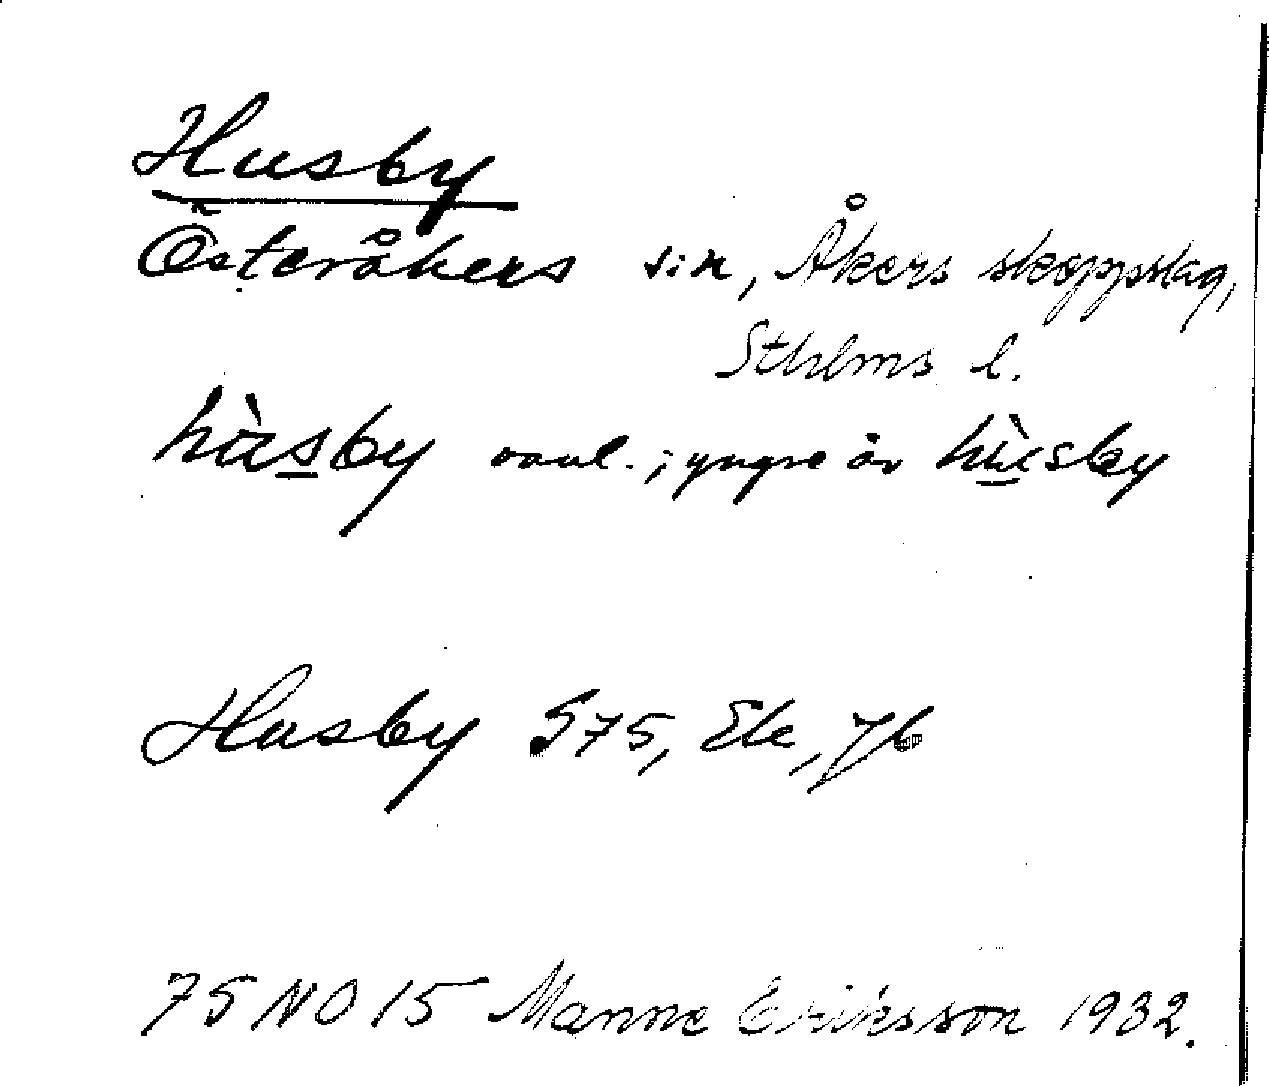 Husby
Österåkers sn, Åkers skeppslag,
Sthlms l.
hùsby vanl.; yngre är hùsby
Husby S75, Ek, 7b
75 NO 15 Manne Eriksson 1932.